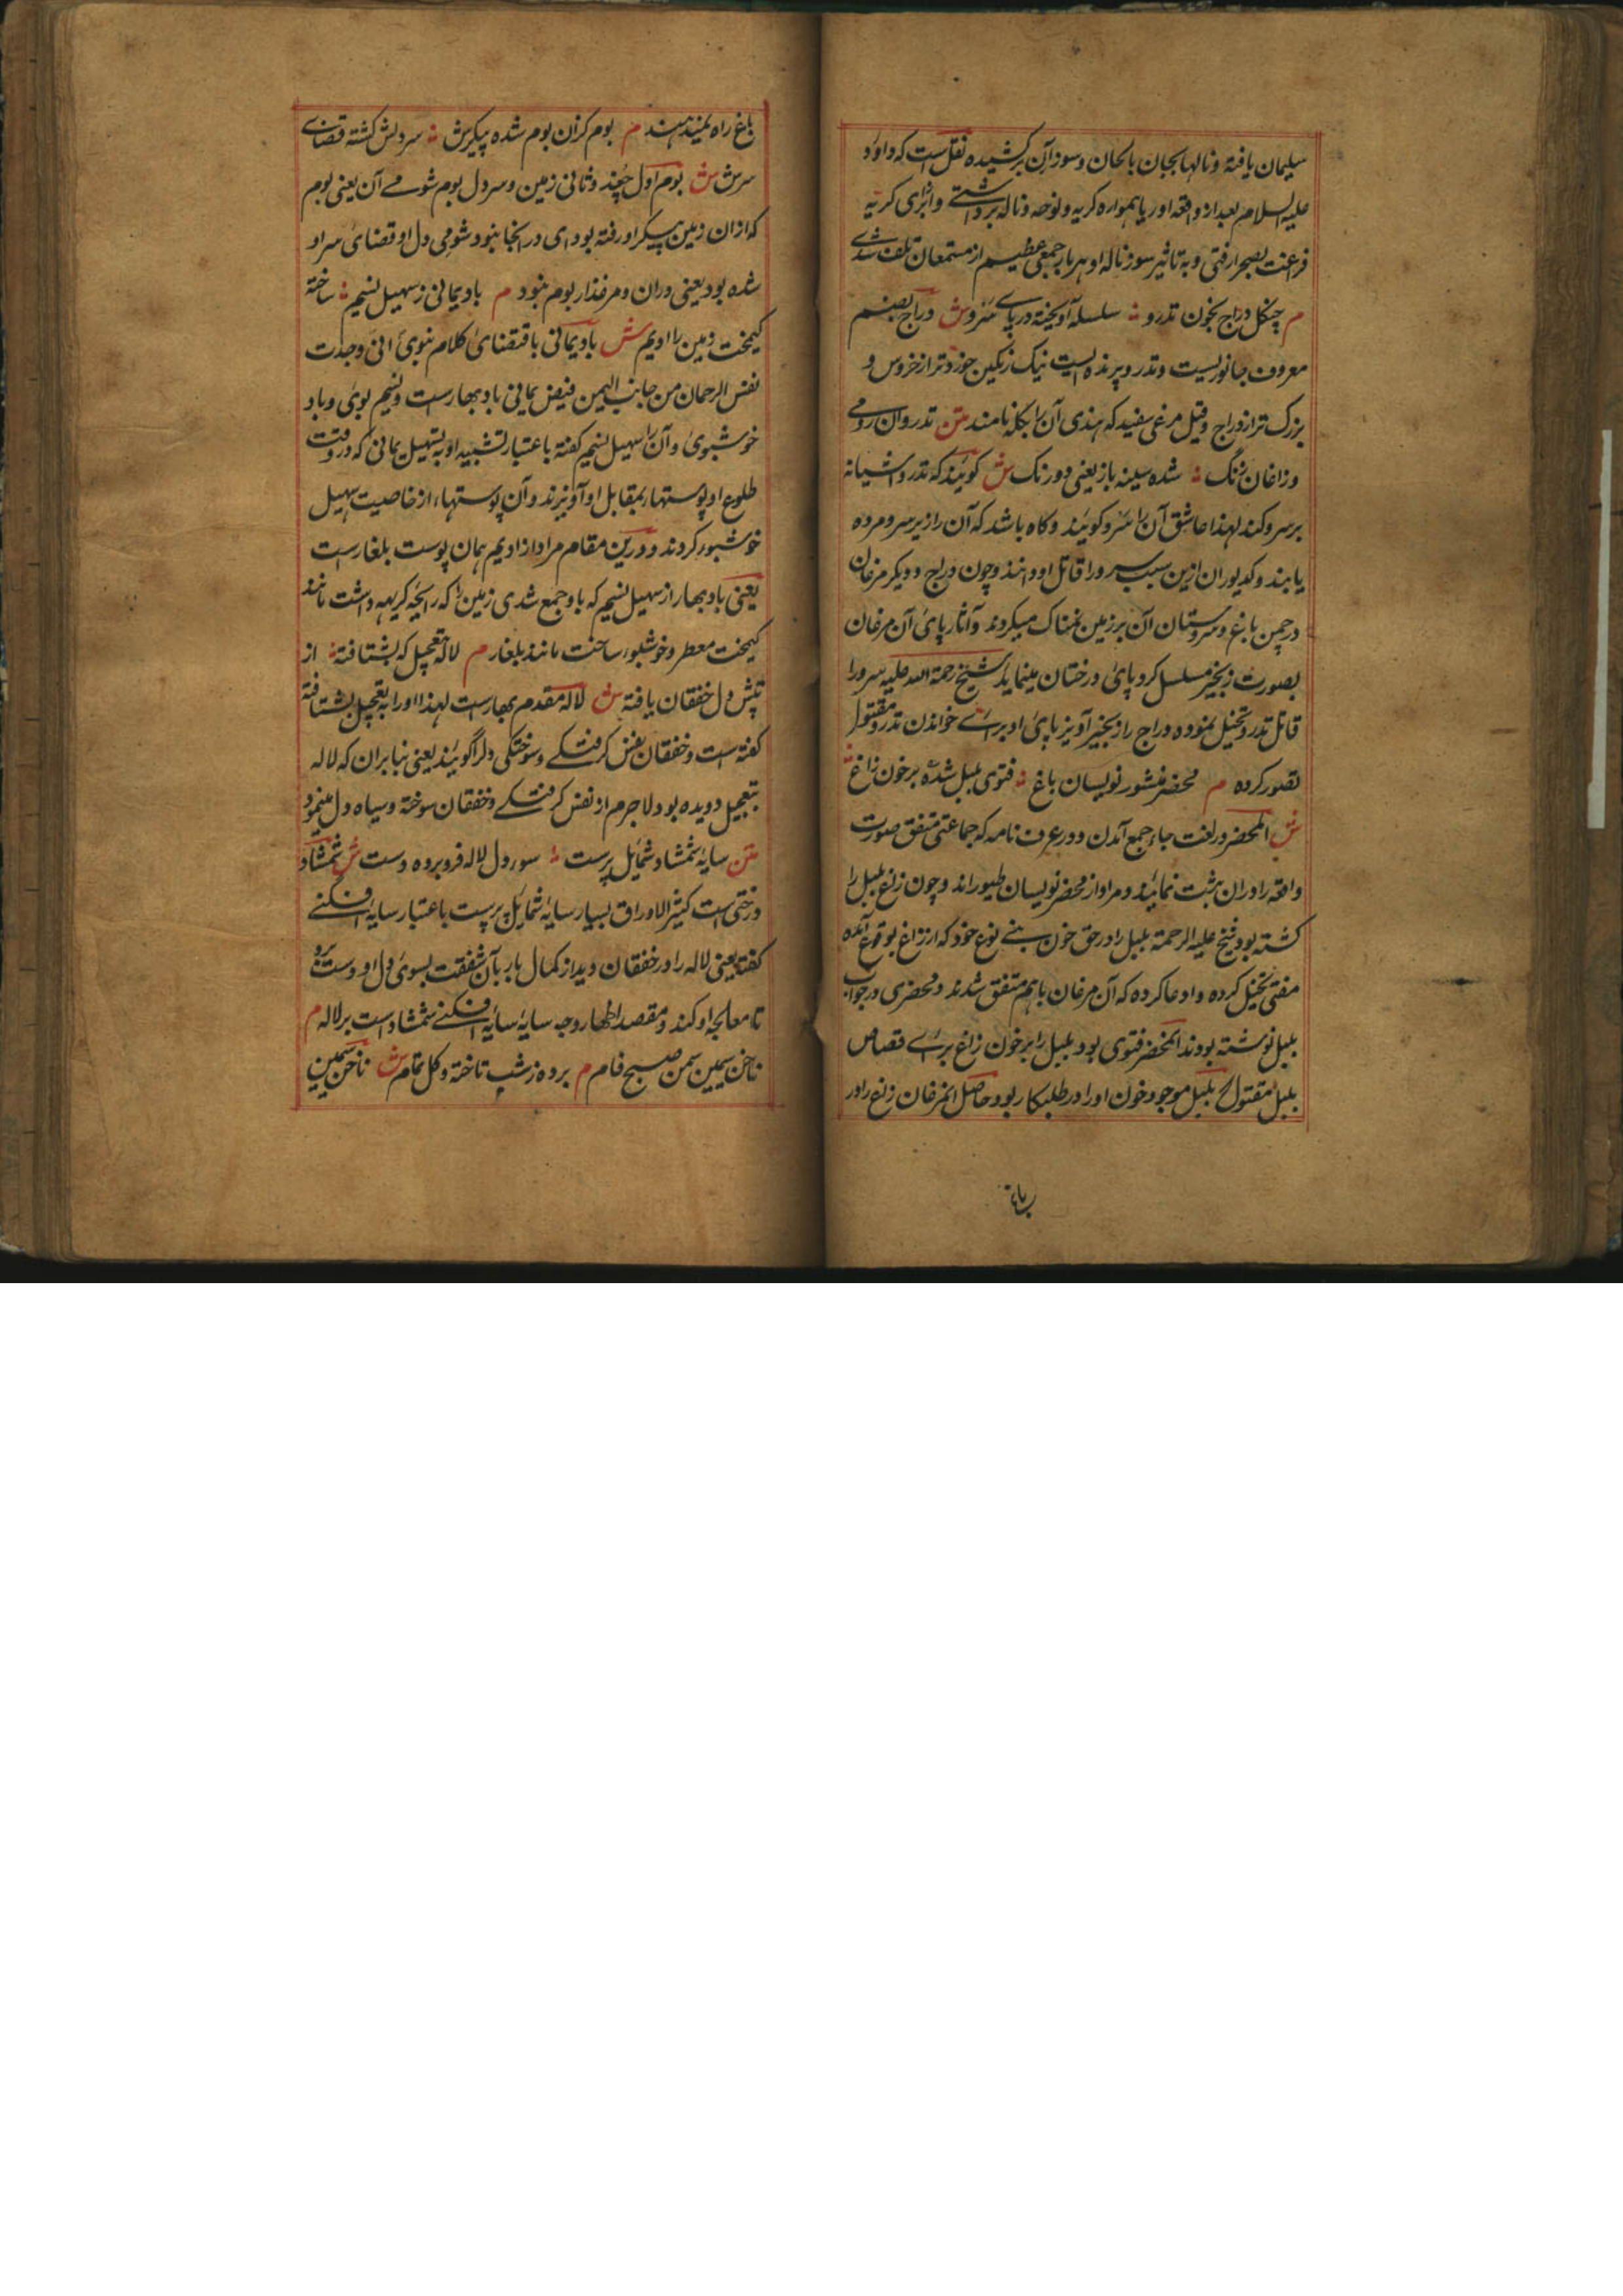 سلیمان یافته و نالها بجان بالحان و سوز آن برکشیده نقل است که داود
علیه السلام بعد از واقعه اوریا همواره کریه و نوحه و ناله برداشتی و از برای کریه
بصحرا رفتی و به تاثیر سوز ناله او هر بار جمعی عظیم از مستمعان تلف شدی
م چنکل دراج بخون تدرو ؞ سلسله آویخته در پای سرو ش دراج بضم
معروف جانوریست و تدرو پرنده ایست نیک رنکین خوردتر از خروس و
بزرک تر از دراج و قیل مرغی سفید که هندی آن را بکله نامند متن تدروان رومی
و زاغان زنگ ؞ شده سینه باز یعنی دو رنک ش کویند که تدرو آشیانه
بر سرو کند لهذا عاشق آن را سرو کویند و کاه باشد که آن را زیر سرو مرده
یابند و کدیوران ازین سبب سرو را قاتل او دانند و چون دراج و دیکر مرغان
در چمن باغ و سروستان آن بر زمین نمناک میکردند و آثار پای آن مرغان
بصورت زنجیر مسلسل کرد پای درختان مینماید شیخ رحمة الله علیه سرو را
قاتل تدرو تخیل نموده و دراج را زنجیر آویز پای او برای خواندن تدرو مقتول
تصور کرده م محضر منشور نویسان باغ ؞ فتوی بلبل شده بر خون زاغ
ش المحضر در لغت جاء جمع آمدن و در عرف نامه که جماعتی متفق صورت
واقعه را در ان ثبت نمایند و مراد از محضر نویسان طیوراند و چون زاغ بلبل را
کشته بود شیخ علیه الرحمة بلبل را در حق خون بنی نوع خود که از زاغ بوقوع آمده
مفتی تخیل کرده و ادعا کرده که آن مرغان باهم متفق شدند و محضری در جواب
بلبل نوشته بودند المحضر فتوی بود بلبل را بر خون زاغ برای قصاص
بلبل مقتول بلبل موجود خون او را در طلبکار بود حاصل مرغان زاغ را در
باغ راه نمیدهند م بوم کزان بوم شده پیکرش ؞ سر دلش کشته قضای
سرش ش بوم اول چغد و ثانی زمین و سر دل بوم شومی آن یعنی بوم
که از ان زمین پیکر او رفته بود ای در انجا نبود شومی دل او قضای سر او
شده بود یعنی دران و مرغذار بوم نبود م باد یمانی ز سهیل نسیم ؞ ساخته
کیمخت زمین را ادیم ش باد یمانی باقتضای کلام نبوی انی وجدت
نفس الرحمان من جانب الیمن فیض یمانی باد بهارست و نسیم بوی و باد
خوشبوی و آن را سهیل نسیم کفته باعتبار تشبیه او بسهیل یمانی که در وقت
طلوع او پوستها بمقابل او آویزند و آن پوستها از خاصیت سهیل
خوشبو کردند و درین مقام مراد از ادیم همان پوست بلغارست
یعنی باد بهار از سهیل نسیم که باو جمع شدی زمین را که رایحه کریهه داشت مانند
کیمخت معطر و خوشبو ساخت مانند بلغار م لاله بتعجیل که بشتافته ؞ از
تپش دل خفقان یافته ش لاله مقدم بهارست لهذا او را بتعجیل بشتافته
کفته است و خفقان نفس کرفتکی و سوختکی دل را کویند یعنی بنابران که لاله
بتعجیل دویده بود لاجرم از نفس کرفتکی و خفقان سوخته و سیاه دل مینمود
متن سایه شمشاد شمایل پرست ؞ سوی دل لاله فرو برده دست ش شمشاد
درختی است کثیر الاوراق بسیار سایه شمایل پرست باعتبار سایه افکنی
کفته یعنی لاله را در خفقان دید از کمال بار بآن شفقت بسوی دل او دست برد
تا معالجه او کند و مقصد اظهار وجه سایه سایه افکنی شمشاد است بر لاله م
ناخن سیمین سمن صبح فام م برده ز شب تاخته و کل تمام ش ناخن سیمین